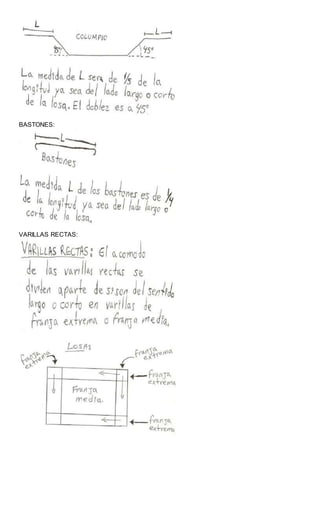 L
COLUMPIO
L
45°
45°
La medida de L sera de 1/5 de la
longitud ya sea del lado largo o corto
de la losa. El doblez es a 45°
BASTONES:
L
Bastones
La medida L de los bastones es de 1/4
de la longitud, ya sea del lado largo o
corto de la losa.
VARILLAS RECTAS:
VARILLAS RECTAS: El acomodo
de las varillas rectas se
dividen aparte de si son del sentido
largo o corto en varillas de
franja extrema o franja media.
LOSAS
franja
extrema
franja
extrema
franja
extrema
Franja
media.
franja
extrema